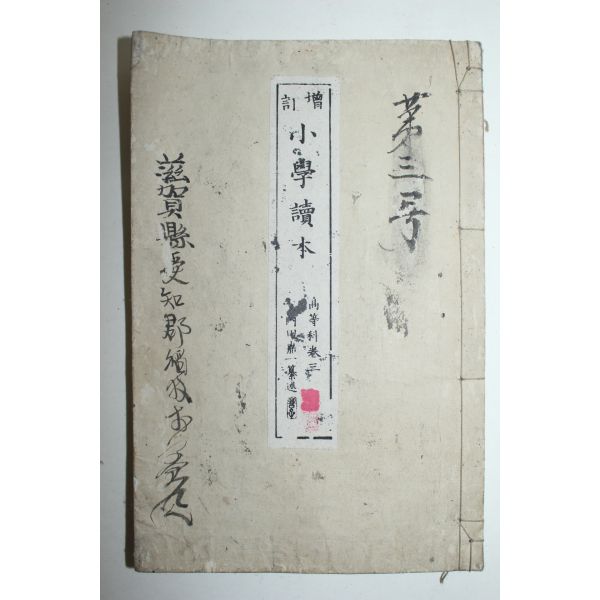 第三号
増訂
小學讀本
高等科卷三
纂述
滋賀縣愛知郡